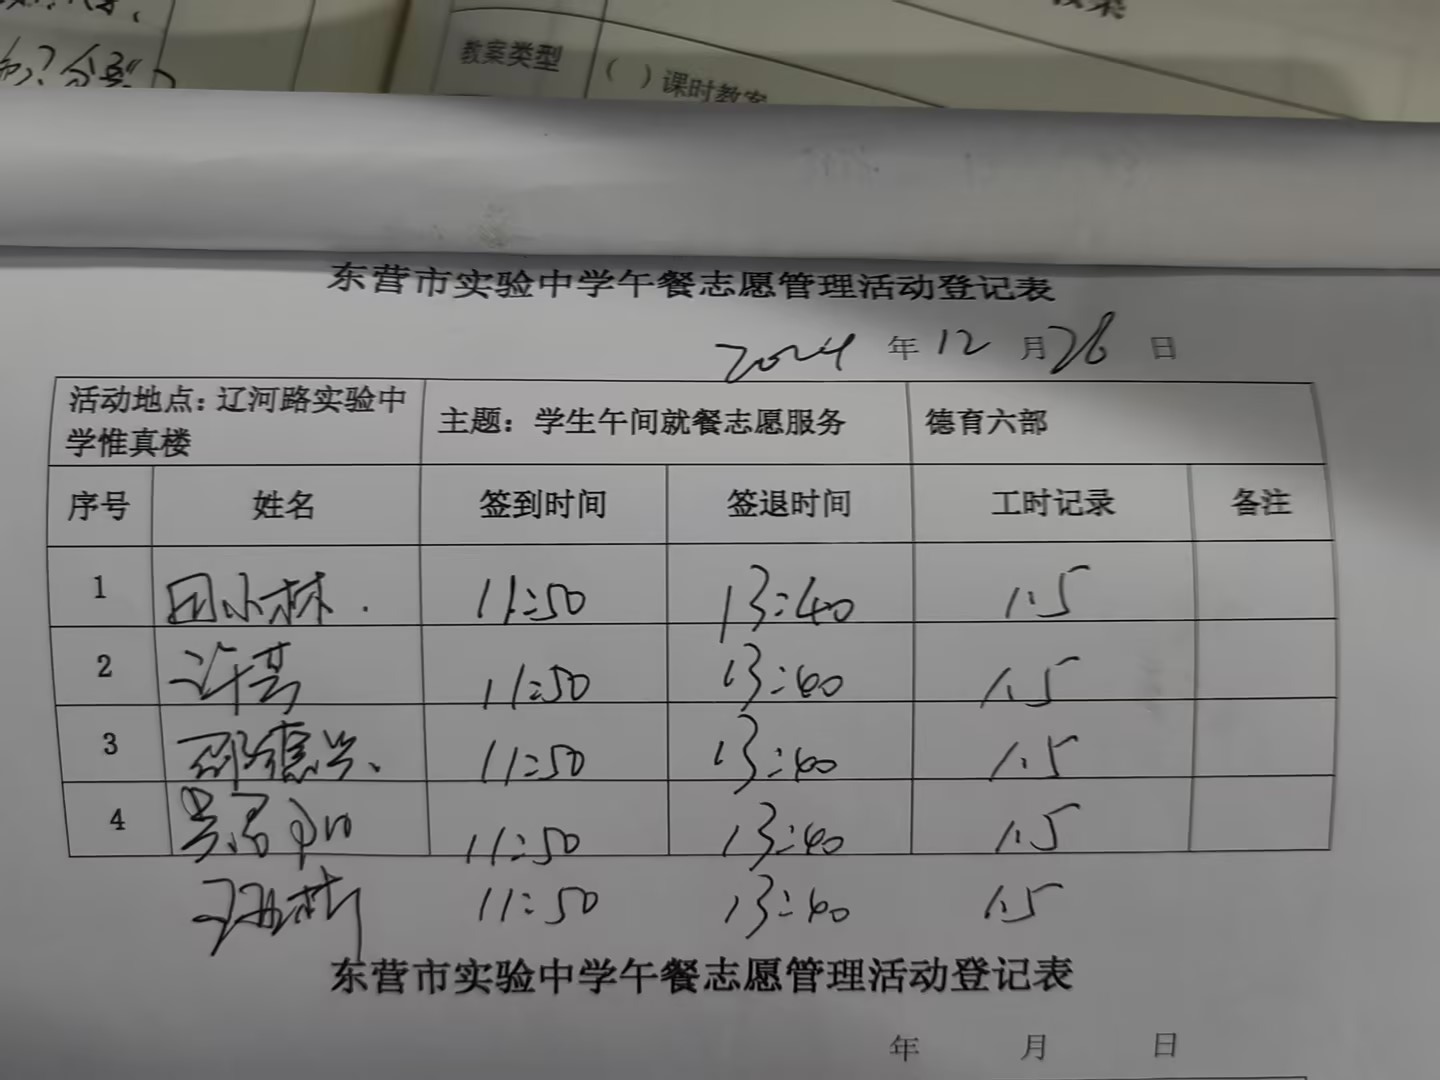 教案类型
( ) 课时教案
东营市实验中学午餐志愿管理活动登记表
2024 年 12 月 26 日
活动地点：辽河路实验中学惟真楼 主题：学生午间就餐志愿服务 德育六部
序号 姓名 签到时间 签退时间 工时记录 备注
1 田小林. 11:50 13:40 1.5
2 许芸 11:50 13:40 1.5
3 邵德兴、 11:50 13:40 1.5
4 11:50 13:40 1.5
11:50 13:40 1.5
东营市实验中学午餐志愿管理活动登记表
年 月 日